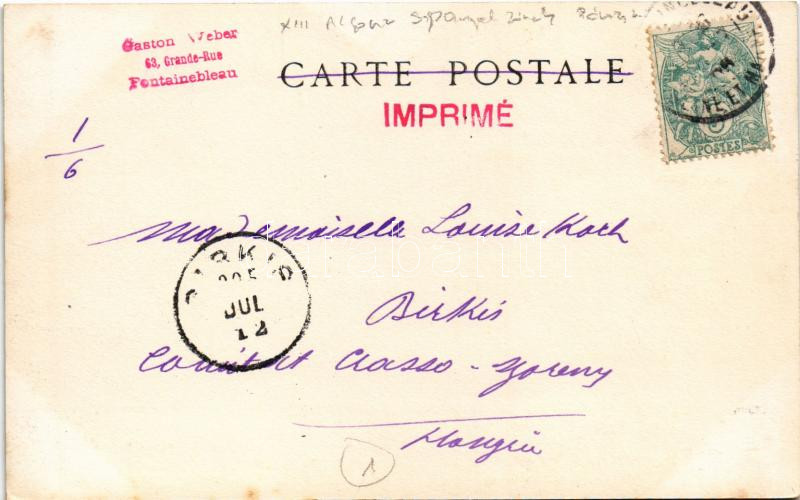 Gaston Weber
63, Grande-Rue
Fontainebleau
XIII
CARTE POSTALE
IMPRIMÉ
POSTES
1/6
Mademoiselle Louise Koch
BIRKIS
905
JUL
12
Birkis
Comitat Crasso-Szoreny
Hongrie
1